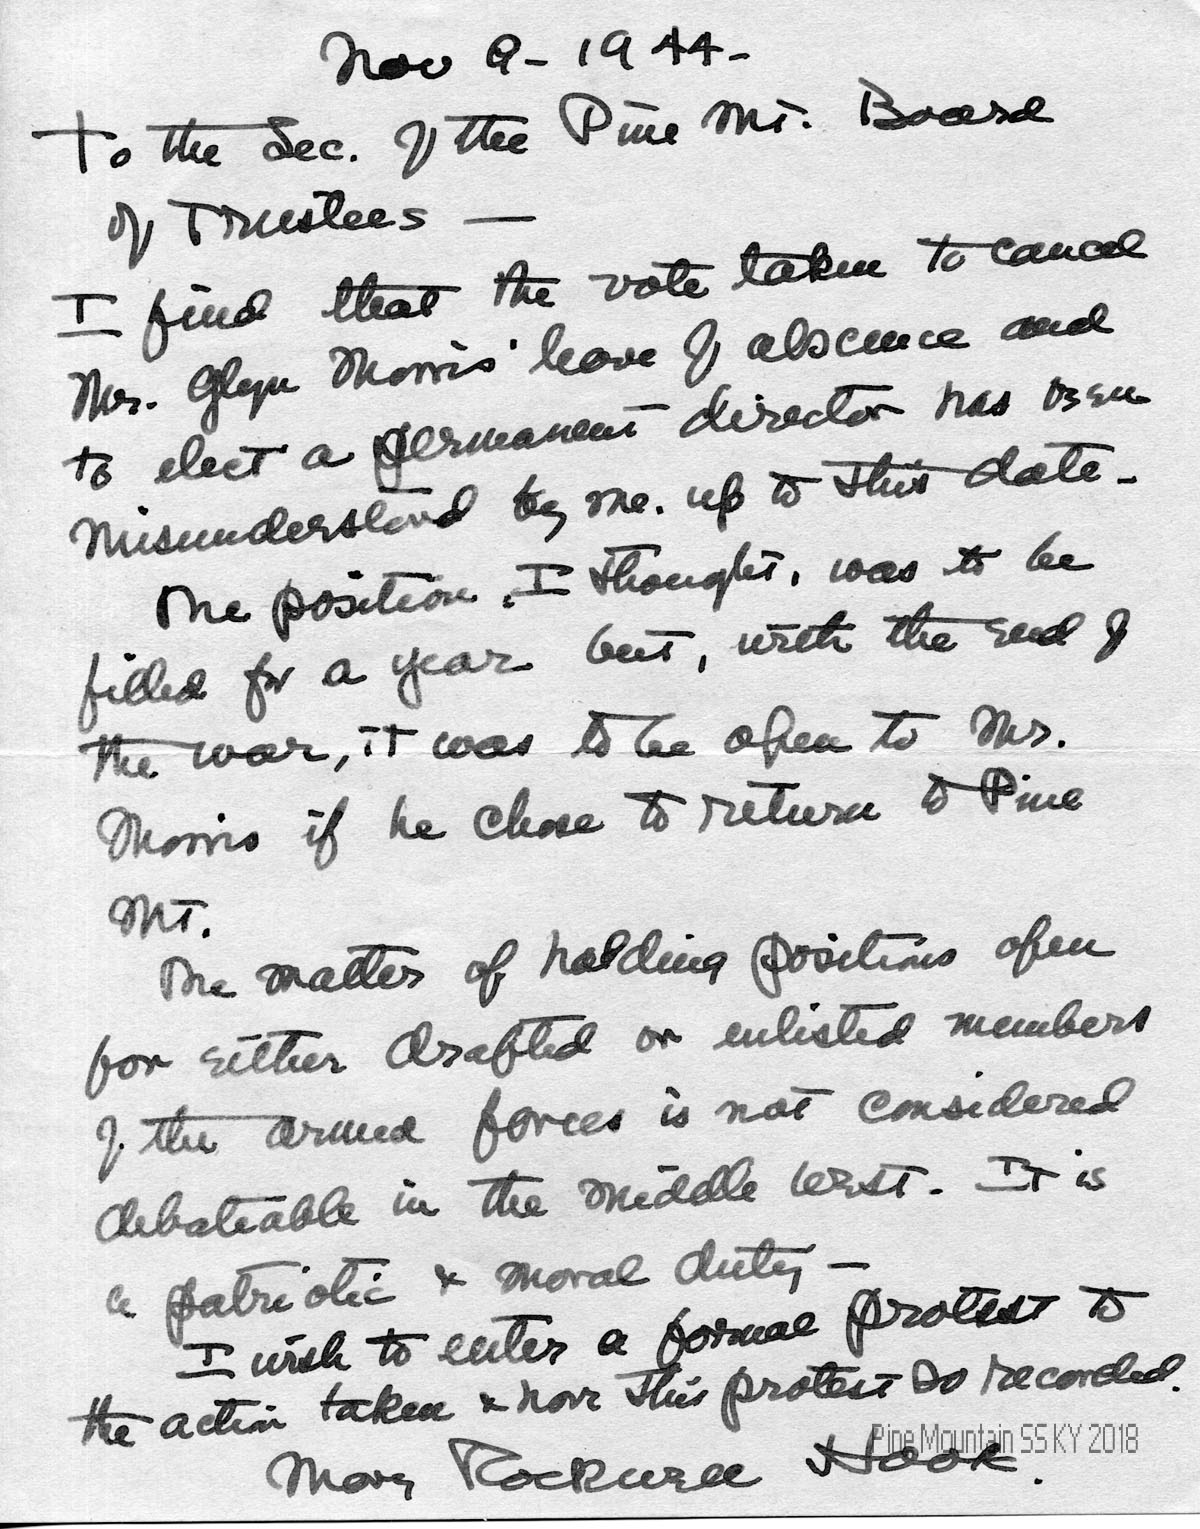 Nov 9 - 1944 -
To the Sec. of the Pine Mt. Board
of Trustees —
I find that the vote taken to cancel
Mr. Glyn Morris' leave of absence and
to elect a permanent director has been
misunderstood by me. up to this date -
The position, I thought, was to be
filled for a year but, with the end of
the war, it was to be open to Mr.
Morris if he chose to return to Pine
Mt.
The matter of holding positions open
for either drafted or enlisted members
of the armed forces is not considered
debateable in the middle west. It is
a patriotic & moral duty —
I wish to enter a formal protest to
the action taken & have this protest so recorded.
Pine Mountain SS KY 2018
Mary Rockwell Hook.